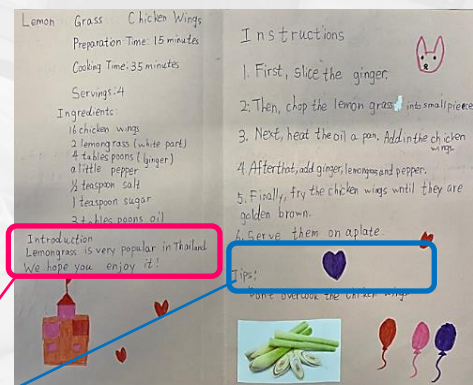 Lemon Grass Chicken Wings
Preparation Time: 15 minutes
Cooking Time: 35 minutes
Servings: 4
Ingredients:
16 chicken wings
2 lemongrass (white part)
4 tablespoons (ginger)
a little pepper
½ teaspoon salt
1 teaspoon sugar
2 tablespoons oil
Introduction
Lemongrass is very popular in Thailand
We hope you enjoy it!
Instructions
1. First, slice the ginger.
2. Then, chop the lemon grass into small pieece
3. Next, heat the oil a pan. Add in the chicken
wings
4. After that, add ginger, lemongrass and pepper.
5. Finally, fry the chicken wings until they are
golden brown.
6. Serve them on a plate.
Tips:
Don't overcook the chicken wings